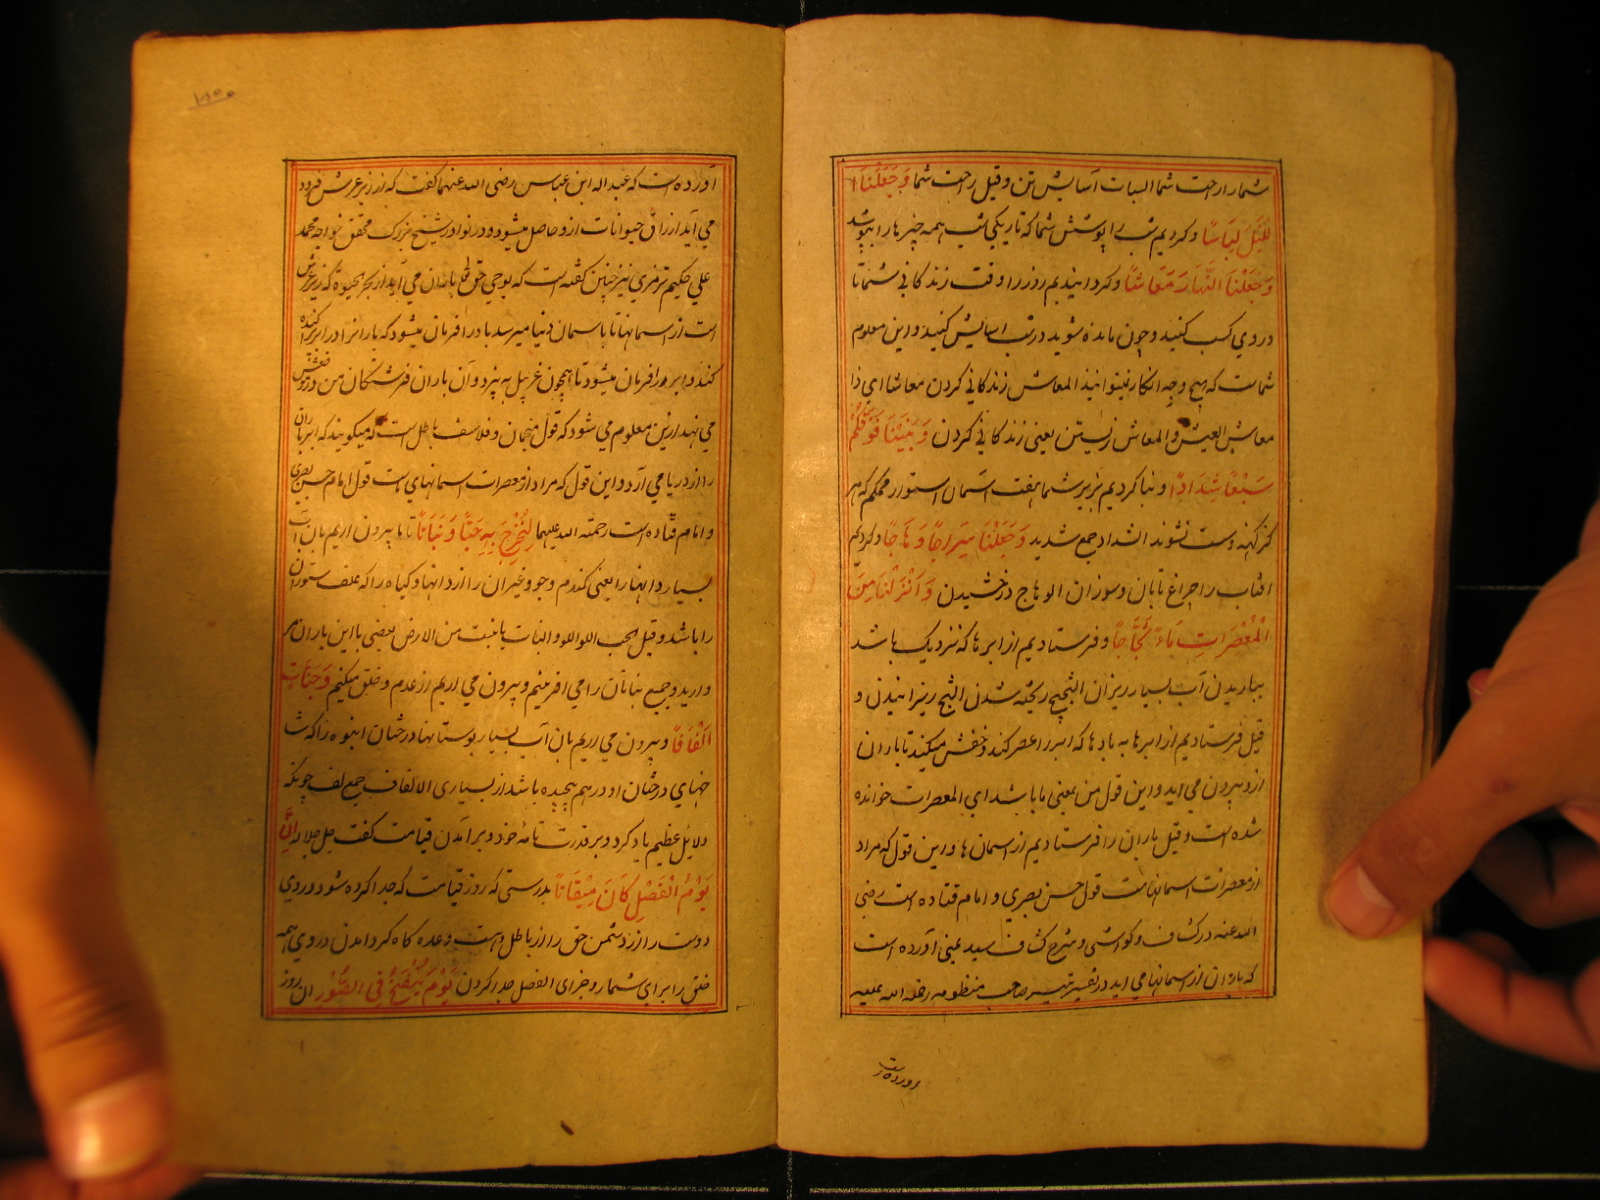 شمارا راحت شما السبات آسایش تن و قیل راحت شما وَجَعَلْنَا ا
للَّیْلَ لِبَاسًا و کردیم شب را پوشش شما که تاریکی شب همه چیزها را بپوشد
وَجَعَلْنَا النَّهَارَ مَعَاشًا و کردانیدیم روز را وقت زندکانی شما تا
در وی کسب کنید و چون مانده شوید در شب اسایش کنید و این معلوم
شماست که هیچ وجه انکار نیتوانید المعاش زندکانی کردن معاشا ای ذا
معاش العیش و المعاش زیستن یعنی زندکانی کردن وَبَنَیْنَا فَوْقَکُمْ
سَبْعًا شِدَادًا و بنا کردیم بر زبر شما هفت آسمان استوار محکم که هر
کز کهنه و سست نشوند الشداد جمع شدید وَجَعَلْنَا سِرَاجًا وَهَّاجًا و کردیم
افتاب را چراغ تابان و سوزان الوهاج درخشیدن وَأَنْزَلْنَا مِنَ
الْمُعْصِرَاتِ مَاءً ثَجَّاجًا و فرستادیم از ابرها که نزدیک باشد
بباریدن آب بسیار ریزان الثجیج ریخته شدن الثج ریزانیدن و
قیل فرستادیم از ابرها به بادها که ابر را عصر کند و خفش میکنند تا باران
ازو بیرون می اید و این قول من بمعنی با باشد ای بالمعصرات خوانده
شده است و قیل باران را فرستادیم از اسمان ها و این قول که مراد
از معصرات اسمانهاست قول حسن بصری و امام قتاده است رضی
الله عنه در کشاف و کواشی و شرح کشاف سید یمنی آورده است
که باران از اسمانها می اید در تفسیر تیسیر صاحب منظومه رحمة الله علیه
آورده است که عبد اله ابن عباس رضی الله عنهما کفت که از زیر عرش فرود
می آید ارزاق حیوانات ازو حاصل میشود و در نوادر شیخ بزرک محقق خواجه محمد
علی حکیم ترمزی نیز چنین کفته است که بوحی حق باران می آید از بحر الحیوة که زیر عرش
است از اسمانها تا باسمان دنیا میرسد باد را فرمان میشود که باران را در ابر پراکنده
کند و ابر را فرمان میشود تا همچون غربیل به بیزد و آن باران فرشتکان من در
می نهد ازین معلوم می شود که قول منجمان و فلاسفه باطل است که میکویند که ابر باران
را از دریا می آرد و این قول که مراد از معصرات اسمانهای است قول امام حسن بصری
و امام قتاده است رحمته الله علیهما لِنُخْرِجَ بِهِ حَبًّا وَنَبَاتًا تا بیرون اریم بان آب
بسیار دانها را یعنی کندم و جو و غیر ان را از دانها و کیاه را که علف ستوران
را باشد و قیل الحب اللواللو و النبات ما نبت من الارض یعنی با این باران مر
وارید و جمیع نباتان را می افرینیم و بیرون می اریم از عدم و خلق میکنیم وَجَنَّاتٍ
أَلْفَافًا و بیرون می اریم بان آب بسیار بوستانها درختان انبوه را که ش
خهای درختان او در هم پیچیده باشد از بسیاری الالفاف جمع لف چونکه
دلایل عظیم یاد کرد و بر قدرت تامه خود و بر آمدن قیامت کفت جل جلاله إِنَّ
یَوْمَ الْفَصْلِ کَانَ مِیْقَاتًا بدرستی که روز قیامت که جدا کرده شود در وی
دوست را از دشمن حق را از باطل هست وعده کاه کرد امدن در وی همه
خلق را برای شمار و جزای الفصل جدا کردن یَوْمَ یُنْفَخُ فِی الصُّوْرِ ان روز